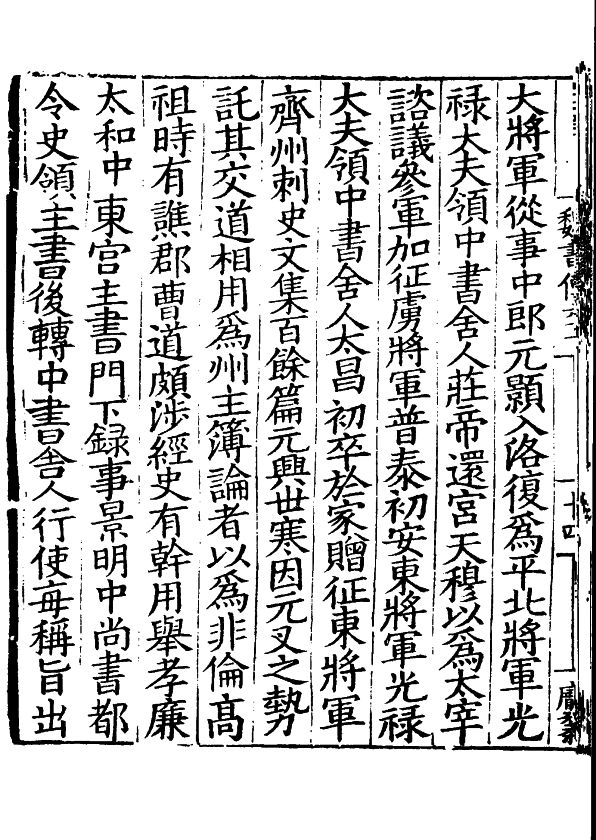 大將軍從事中郎元顥入洛復爲平北將軍光
禄太夫領中書舍人莊帝還宮天穆以爲太宰
諮議參軍加征虜將軍普泰初安東將軍光禄
大夫領中書舍人太昌初卒於家贈征東將軍
齊州刺史文集百餘篇元興世寒因元叉之勢
託其交道相用爲州主簿論者以爲非倫高
祖時有譙郡曹道頗涉經史有幹用舉孝廉
太和中東宮主書門下録事景明中尚書都
令史領主書後轉中書舍人行使每稱旨出
魏書傳
十四